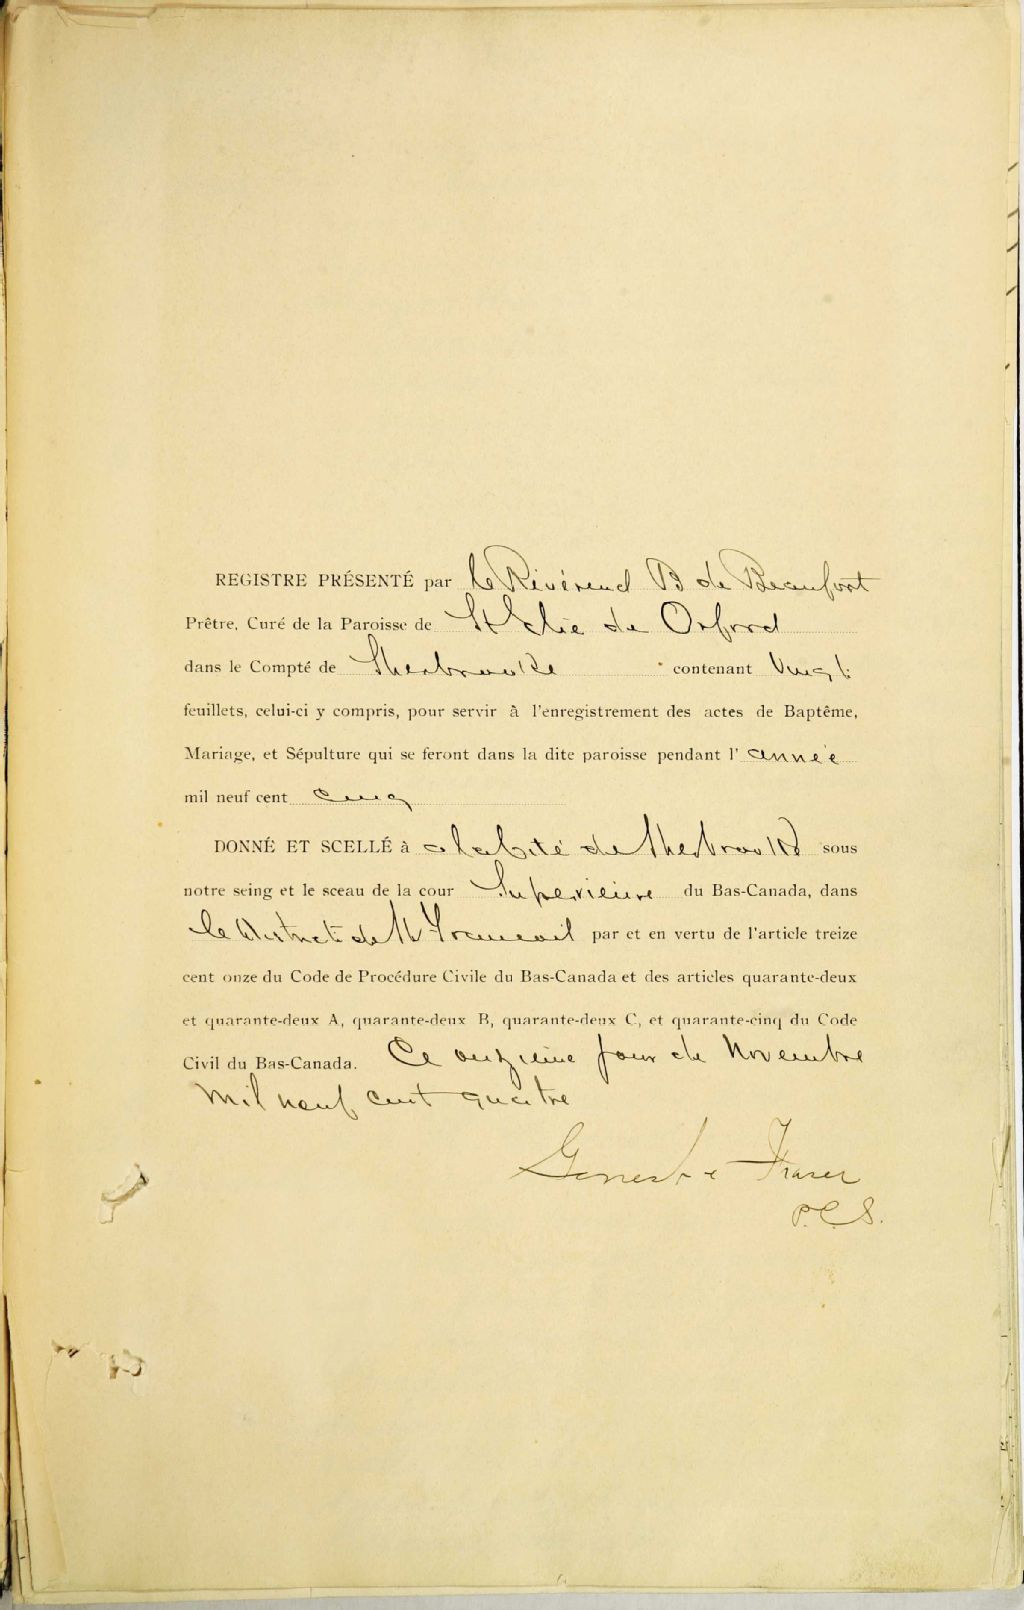 REGISTRE PRÉSENTÉ par le Révérend B de Beaufort
Prêtre, Curé de la Paroisse de St Elie de Orford
dans le Compté de Sherbrooke contenant Vingt
feuillets, celui-ci y compris, pour servir à l'enregistrement des actes de Baptême,
Mariage, et Sépulture qui se feront dans la dite paroisse pendant l'année
mil neuf cent cinq
DONNÉ ET SCELLÉ à a la Cité de Sherbrooke sous
notre seing et le sceau de la cour Superieure du Bas-Canada, dans
le District de St Francois par et en vertu de l'article treize
cent onze du Code de Procédure Civile du Bas-Canada et des articles quarante-deux
et quarante-deux A, quarante-deux B, quarante-deux C, et quarante-cinq du Code
Civil du Bas-Canada. Ce onzieme jour de Novembre
mil neuf cent quatre
Genest & Fraser
P.C.S.